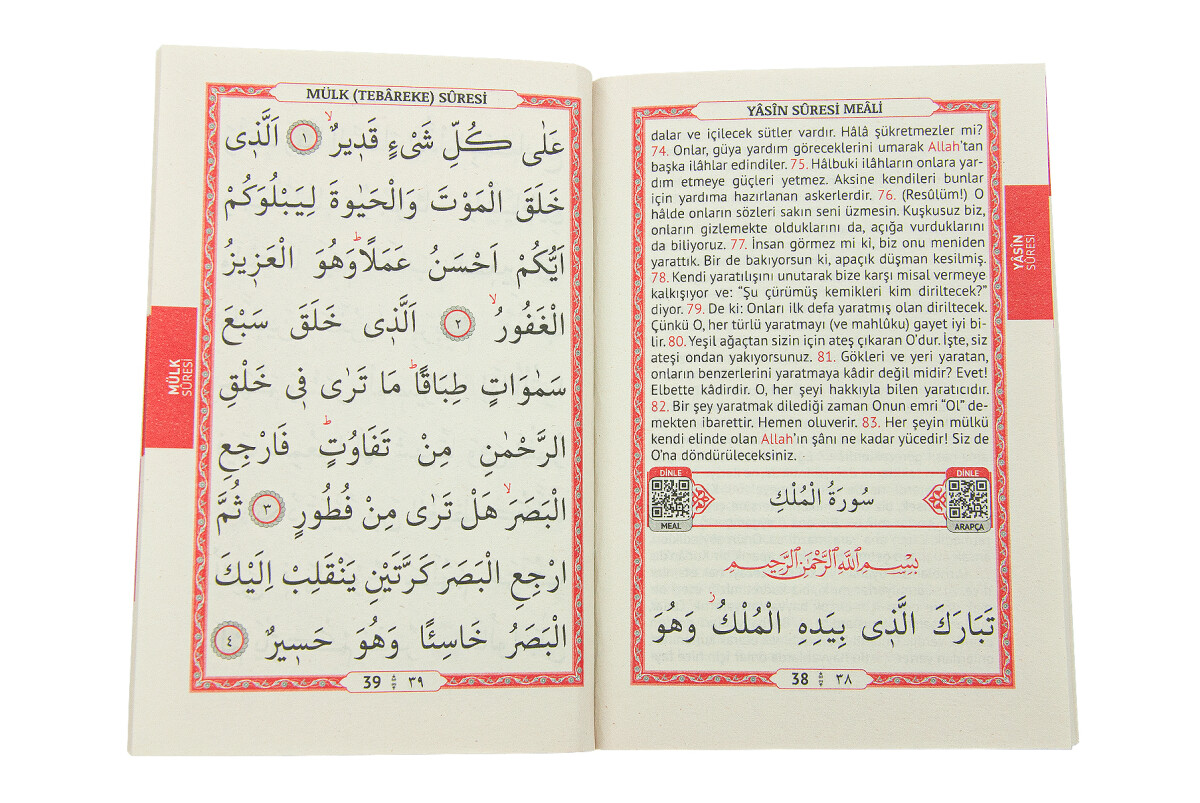 YÂSÎN SÛRESİ MEÂLİ
dalar ve içilecek sütler vardır. Hâlâ şükretmezler mi?
74. Onlar, güya yardım göreceklerini umarak Allah'tan
başka ilâhlar edindiler. 75. Hâlbuki ilâhların onlara yar-
dım etmeye güçleri yetmez. Aksine kendileri bunlar
için yardıma hazırlanan askerlerdir. 76. (Resûlüm!) O
hâlde onların sözleri sakın seni üzmesin. Kuşkusuz biz,
onların gizlemekte olduklarını da, açığa vurduklarını
da biliyoruz. 77. İnsan görmez mi ki, biz onu meniden
yarattık. Bir de bakıyorsun ki, apaçık düşman kesilmiş.
78. Kendi yaratılışını unutarak bize karşı misal vermeye
kalkışıyor ve: “Şu çürümüş kemikleri kim diriltecek?”
diyor. 79. De ki: Onları ilk defa yaratmış olan diriltecek.
Çünkü O, her türlü yaratmayı (ve mahlûku) gayet iyi bi-
lir. 80. Yeşil ağaçtan sizin için ateş çıkaran O'dur. İşte, siz
ateşi ondan yakıyorsunuz. 81. Gökleri ve yeri yaratan,
onların benzerlerini yaratmaya kâdir değil midir? Evet!
Elbette kâdirdir. O, her şeyi hakkıyla bilen yaratıcıdır.
82. Bir şey yaratmak dilediği zaman Onun emri “Ol” de-
mekten ibarettir. Hemen oluverir. 83. Her şeyin mülkü
kendi elinde olan Allah'ın şânı ne kadar yücedir! Siz de
O'na döndürüleceksiniz.
DİNLE
MEAL
سُورَةُ الْمُلْكِ
DİNLE
ARAPÇA
بِسْمِ اللّٰهِ الرَّحْمٰنِ الرَّحِيمِ
تَبَارَكَ الَّذ۪ى بِيَدِهِ الْمُلْكُۘ وَهُوَ
38 ٣٨
YÂSÎN
SÛRESİ
MÜLK (TEBÂREKE) SÛRESİ
عَلٰى كُلِّ شَىْءٍ قَد۪يرٌۙ ﴿١﴾ اَلَّذ۪ى
خَلَقَ الْمَوْتَ وَالْحَيٰوةَ لِيَبْلُوَكُمْ
اَيُّكُمْ اَحْسَنُ عَمَلًاۜ وَهُوَ الْعَز۪يزُ
الْغَفُورُۙ ﴿٢﴾ اَلَّذ۪ى خَلَقَ سَبْعَ
سَمٰوَاتٍ طِبَاقًاۜ مَا تَرٰى ف۪ى خَلْقِ
الرَّحْمٰنِ مِنْ تَفَاوُتٍۜ فَارْجِعِ
الْبَصَرَۙ هَلْ تَرٰى مِنْ فُطُورٍ ﴿٣﴾ ثُمَّ
ارْجِعِ الْبَصَرَ كَرَّتَيْنِ يَنْقَلِبْ اِلَيْكَ
الْبَصَرُ خَاسِئًا وَهُوَ حَس۪يرٌ ﴿٤﴾
39 ٣٩
MÜLK
SÛRESİ